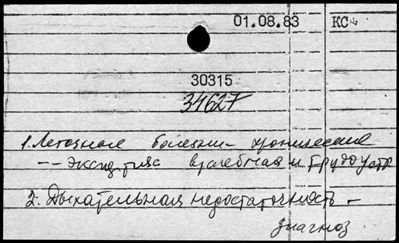 01.08.83 КС
30315
34627
1. Легочные болезни хронические
-- экспертиза врачебная и трудоустр
2. Дыхательная недостаточность –
диагноз